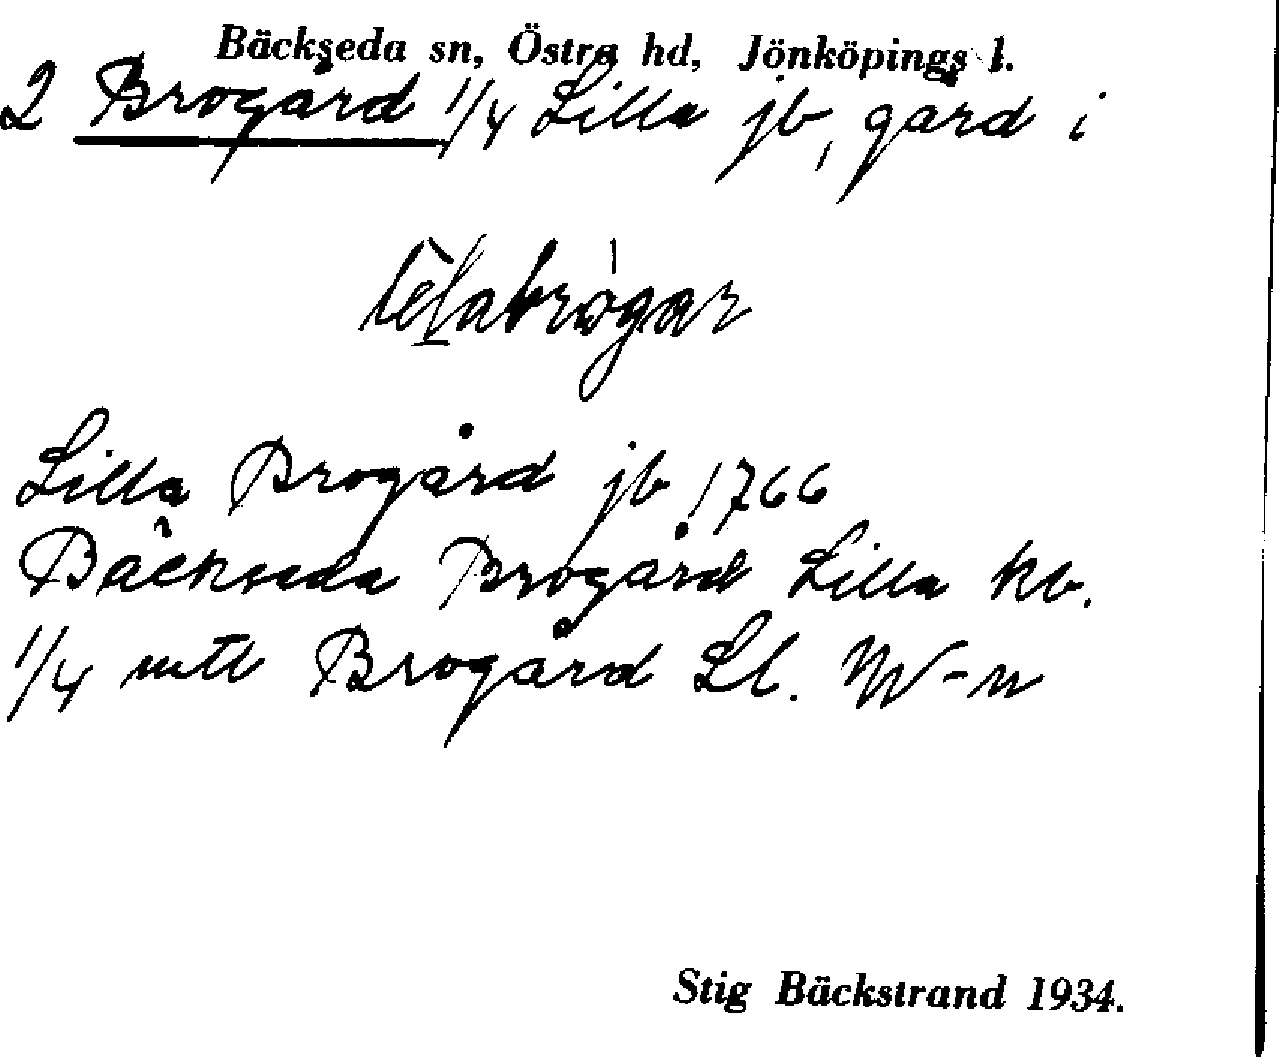 Bäckseda sn, Östra hd, Jönköpings l.
2 Brogård 1/4 Lilla jb, gård i
Lilla Brogård jb 1766
Bäckseda Brogård Lilla kb.
1/4 mtl Brogård Ll. W-n
Stig Bäckstrand 1934.